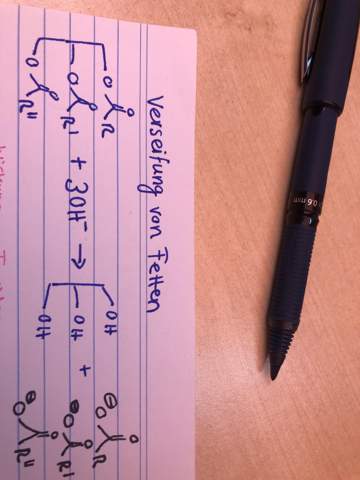 Verseifung von Fetten
O O R
O O R' + 3OH⁻ → OH OH OH + ⊖O O R ⊖O O R' ⊖O O R''
O O R''
0.6 mm